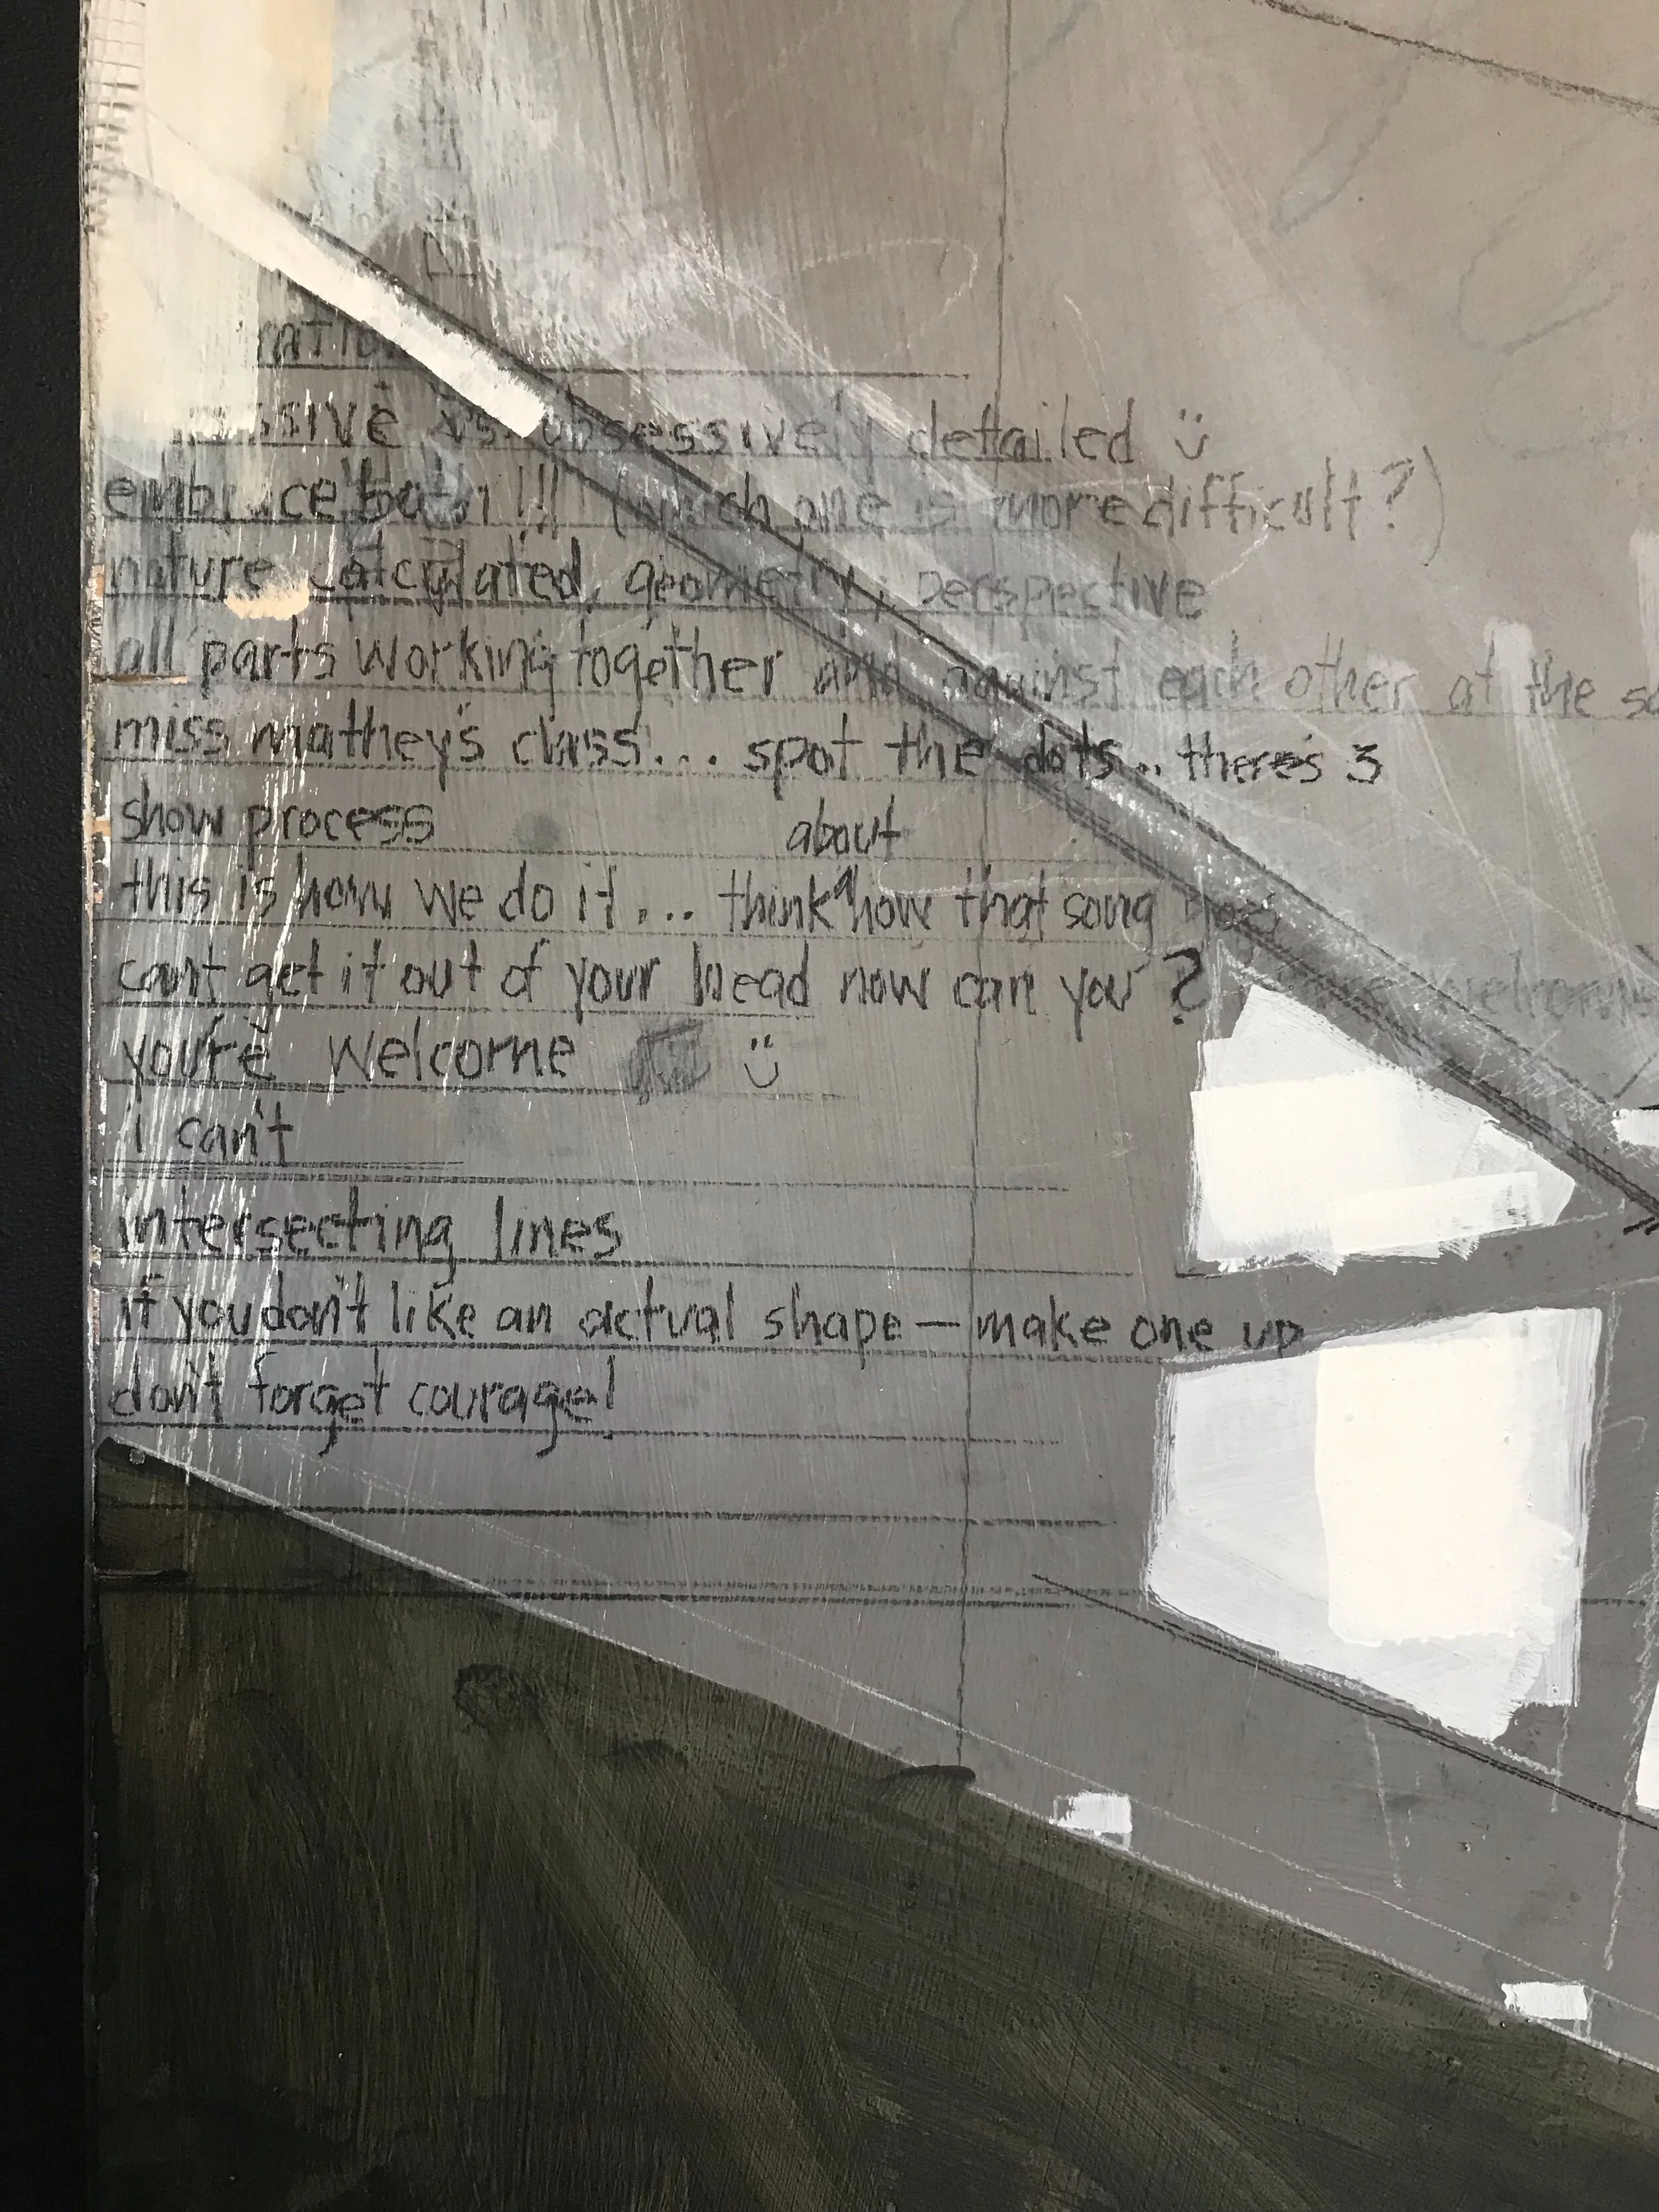 vs. obsessively detailed ن
embrace both!!! (which one is more difficult?)
nature calculated, geometry, perspective
all parts working together and against each other at the
miss mathey's class... spot the dots... there's 3
show process
about
this is how we do it... think ^ how that song goes
can't get it out of your head now can you?
welcome
you're welcome ت
i can't
intersecting lines
if you don't like an actual shape — make one up
don't forget courage!